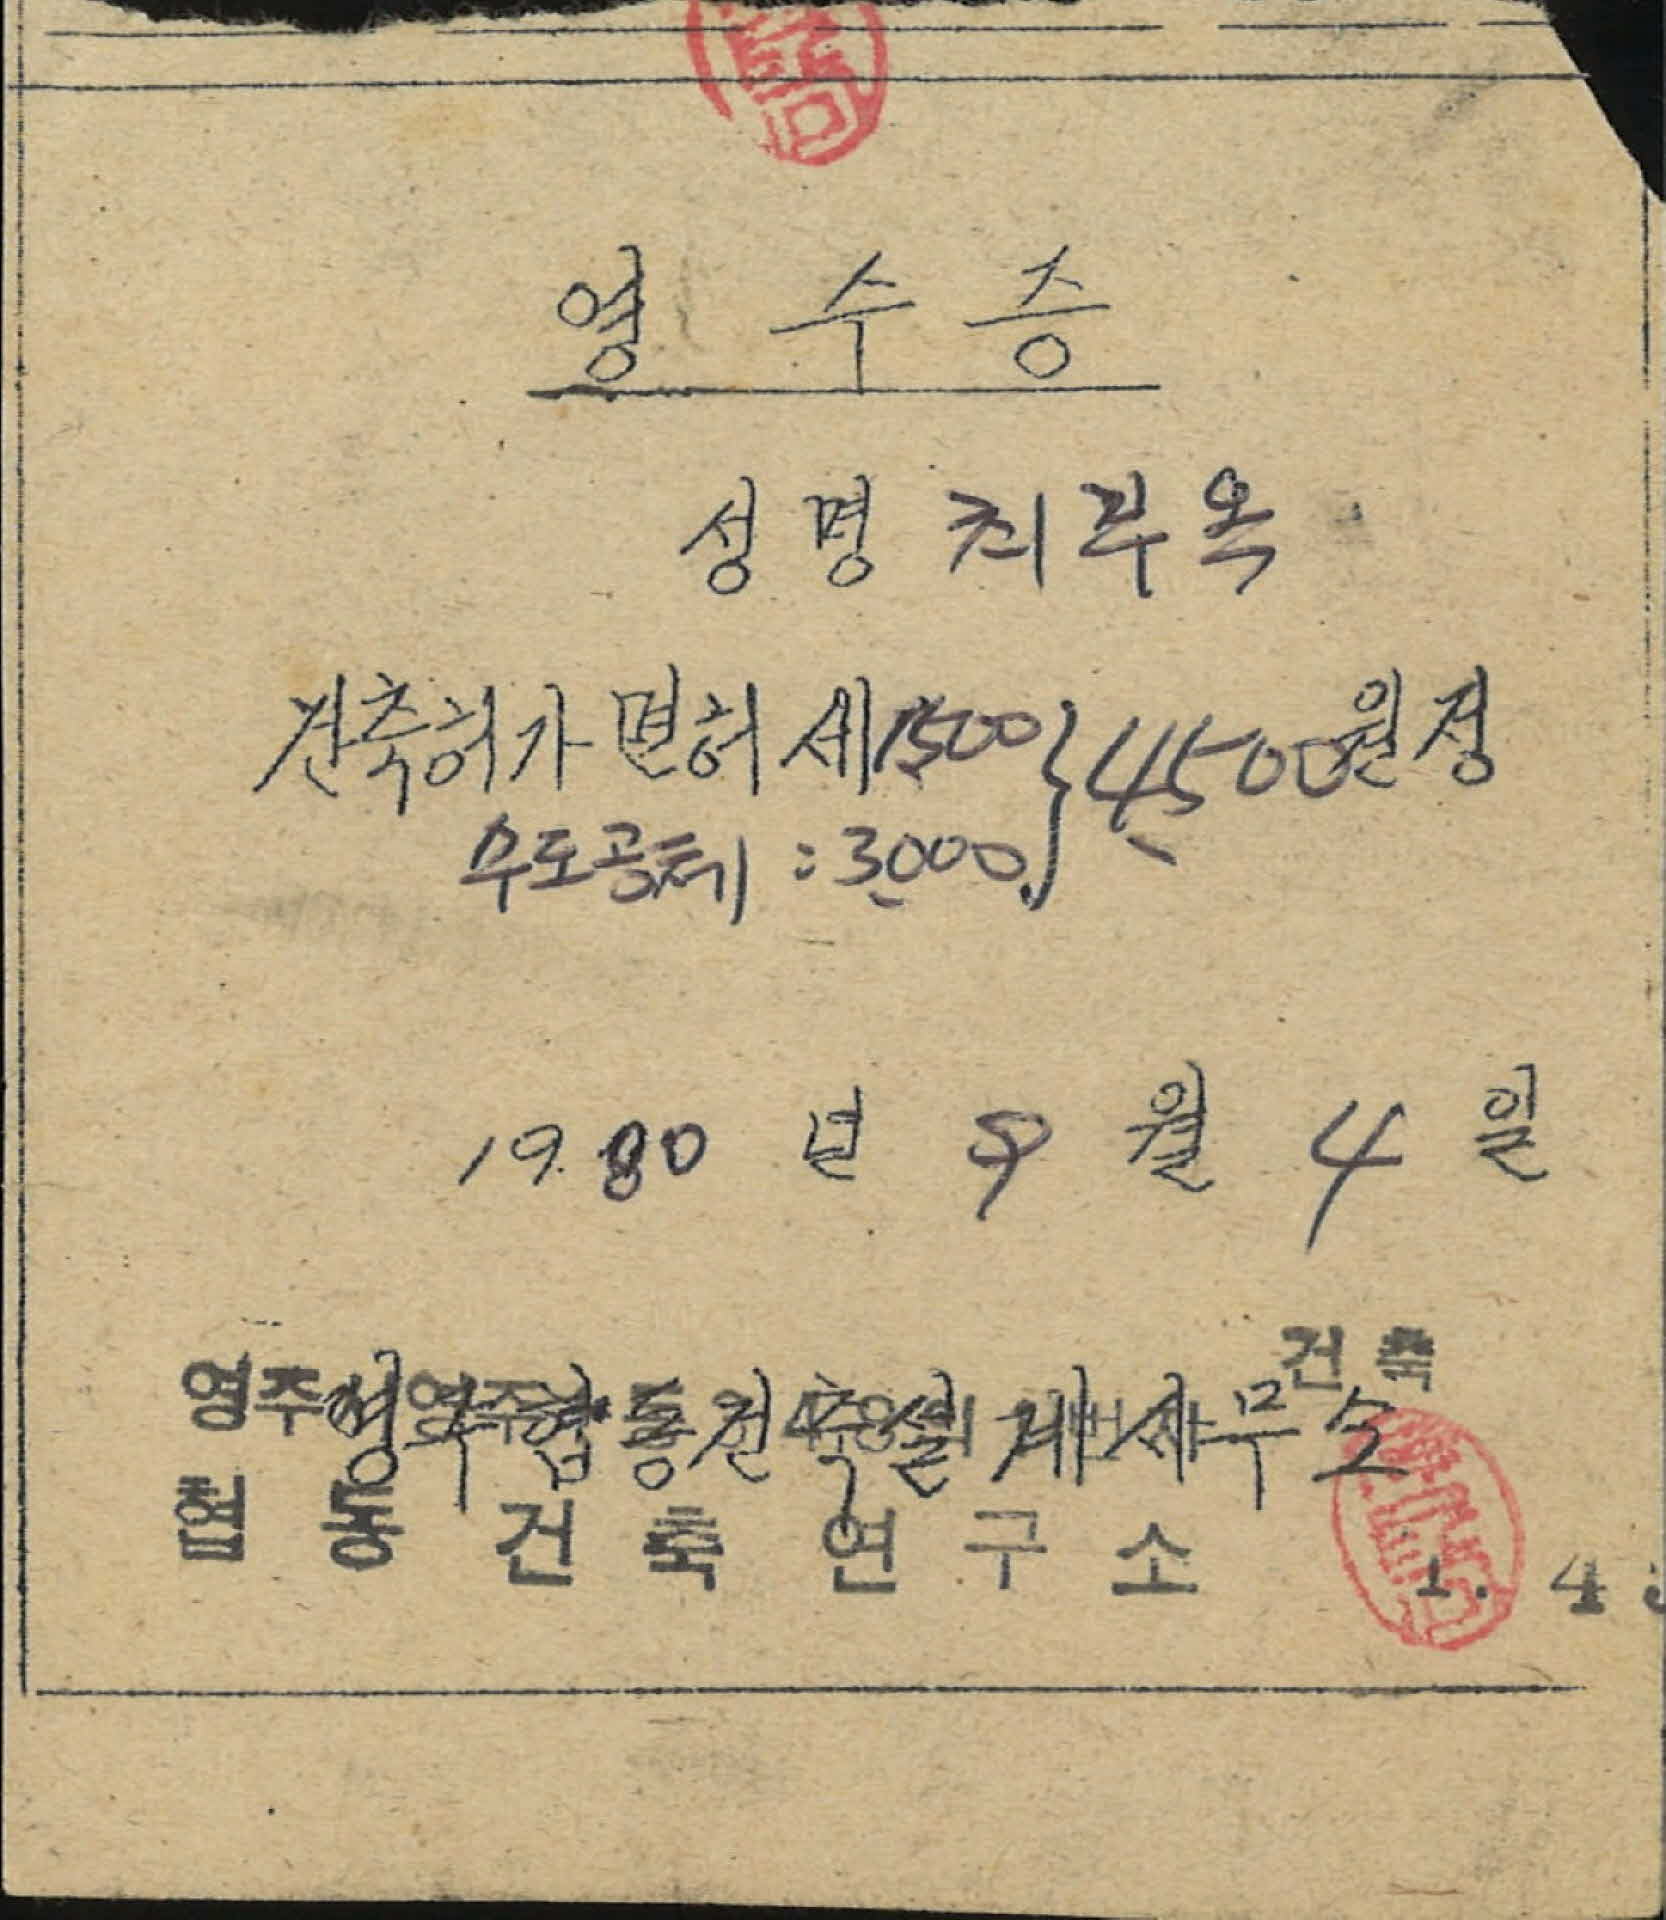 영 수 증
성 명 최 부 옥
건축허가 면허 세 1500 } 4500원정
수도공채 : 3000
1980 년 9 월 4 일
건 축
영주 합동건축설계사무소
합 동 건 축 연 구 소 1. 4